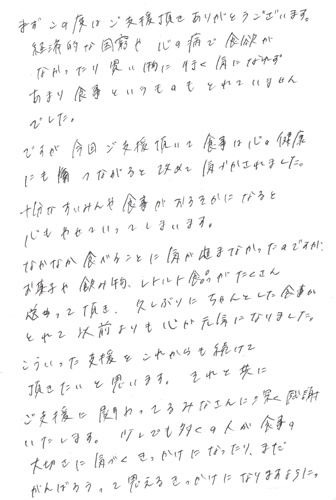 まずこの度はご支援頂きありがとうございます。
経済的な困窮や心の病で食欲が
なかったり買い物に行く気になれず
あまり食事というものもとれていません
でした。
ですが今回ご支援頂いて食事は心の健康
にもつながると改めて気づかされました。
十分なすいみんや食事がおろそかになると
心もやせていってしまいます。
なかなか食べることに気が進まなかったのですが、
お菓子や飲み物、レトルト食品がたくさん
詰まって頂き、久しぶりにちゃんとした食事が
とれて以前よりも心が元気になりました。
こういった支援をこれからも続けて
頂きたいと思います。それと共に
ご支援に関わってるみなさんに深く感謝
いたします。少しでも多くの人が食事の
大切さに気づくきっかけになったり、まだ
がんばろうって思えるきっかけになりますように。